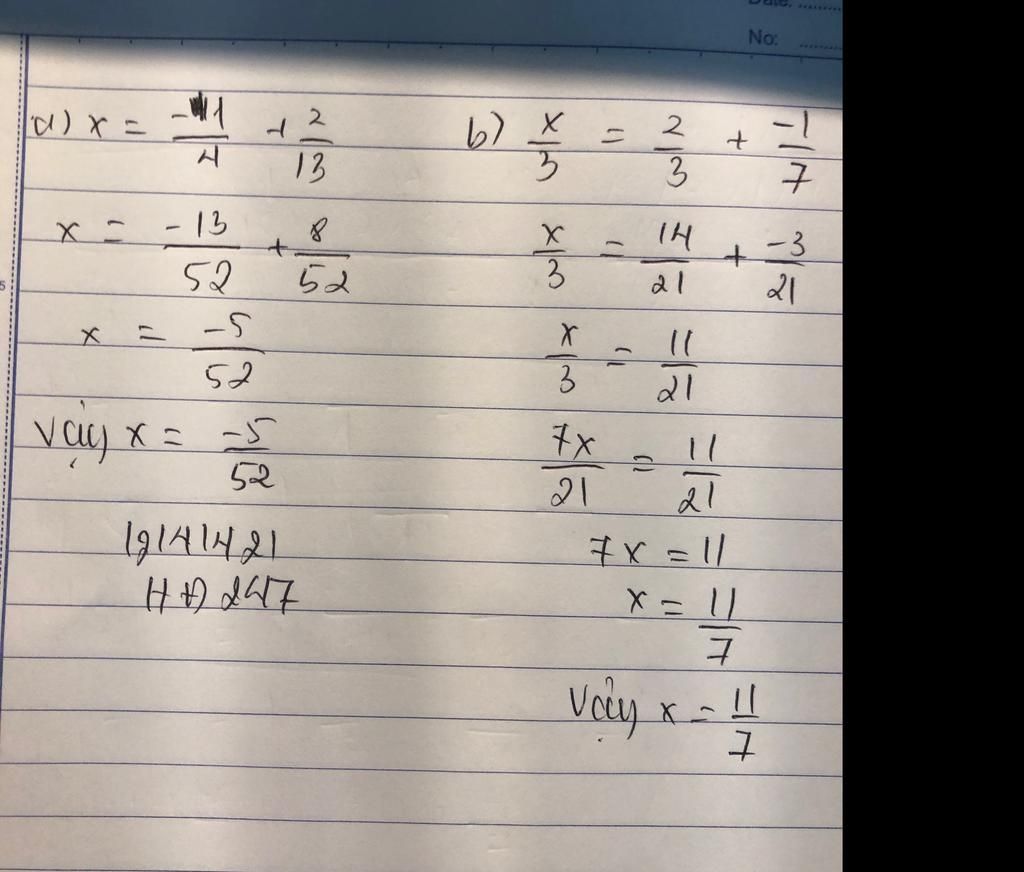 Date: ........
No: ........
a) x = -1/4 + 2/13
x = -13/52 + 8/52
x = -5/52
Vậy x = -5/52
12141421
b) x/3 = 2/3 + -1/7
x/3 = 14/21 + -3/21
x/3 = 11/21
7x/21 = 11/21
7x = 11
x = 11/7
Vậy x = 11/7